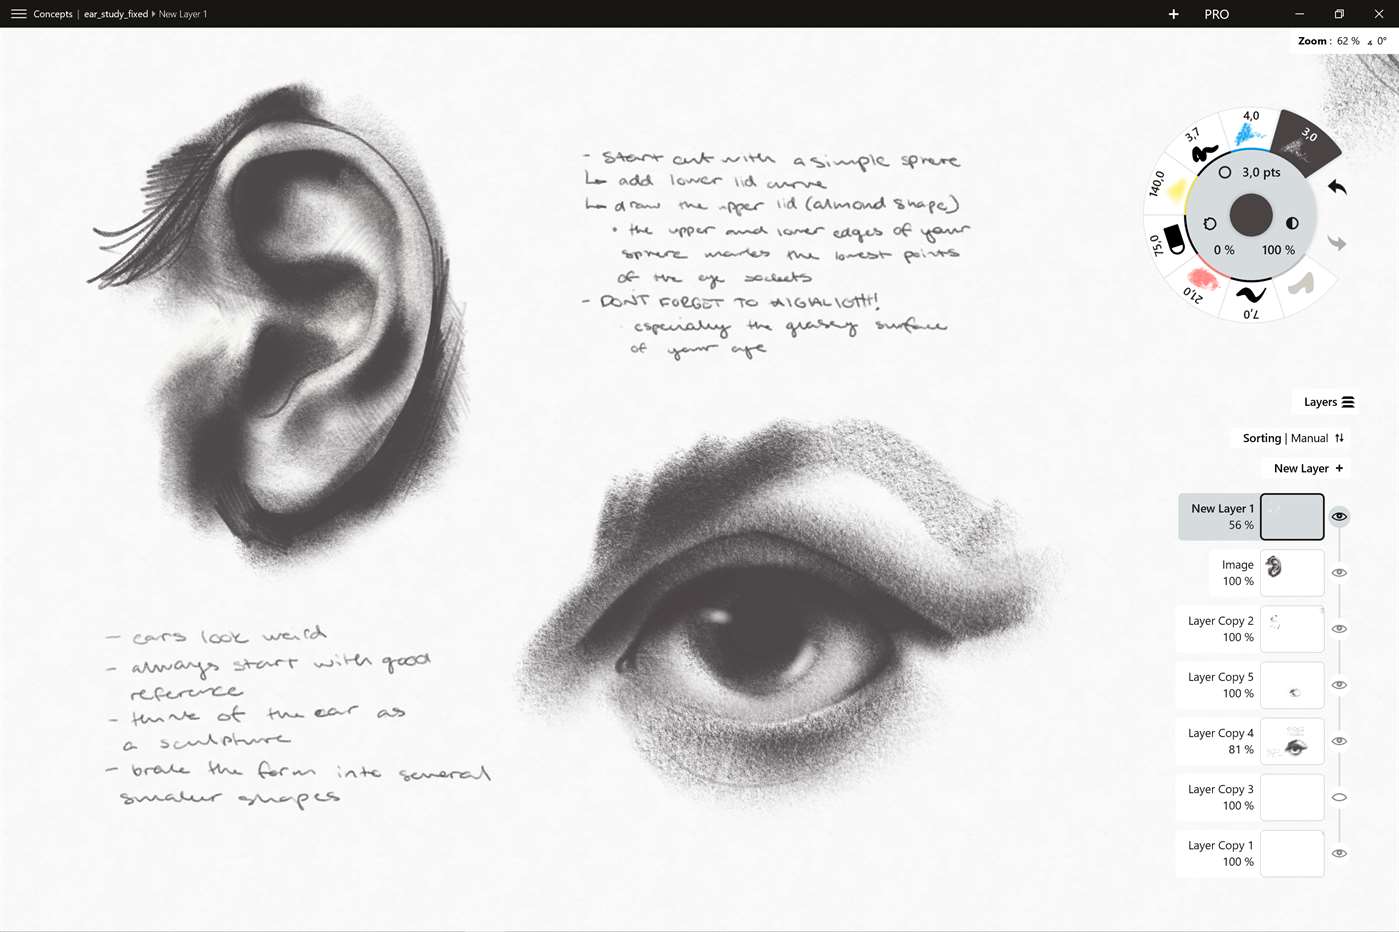 Concepts | ear_study_fixed ▸ New Layer 1
+ PRO
Zoom : 62 % 0°
- start out with a simple sphere
↳ add lower lid curve
↳ draw the upper lid (almond shape)
• the upper and lower edges of your
sphere marks the lowest points
of the eye sockets
- DON'T FORGET TO HIGHLIGHT!
especially the glassy surface
of your eye
4,0
3,0
3,7
140,0
75,0
21,0
7,0
3,0 pts
0 %
100 %
Layers
Sorting | Manual
New Layer +
New Layer 1
56 %
Image
100 %
Layer Copy 2
100 %
Layer Copy 5
100 %
Layer Copy 4
81 %
Layer Copy 3
100 %
Layer Copy 1
100 %
- ears look weird
- always start with good
reference
- think of the ear as
a sculpture
- brake the form into several
smaller shapes